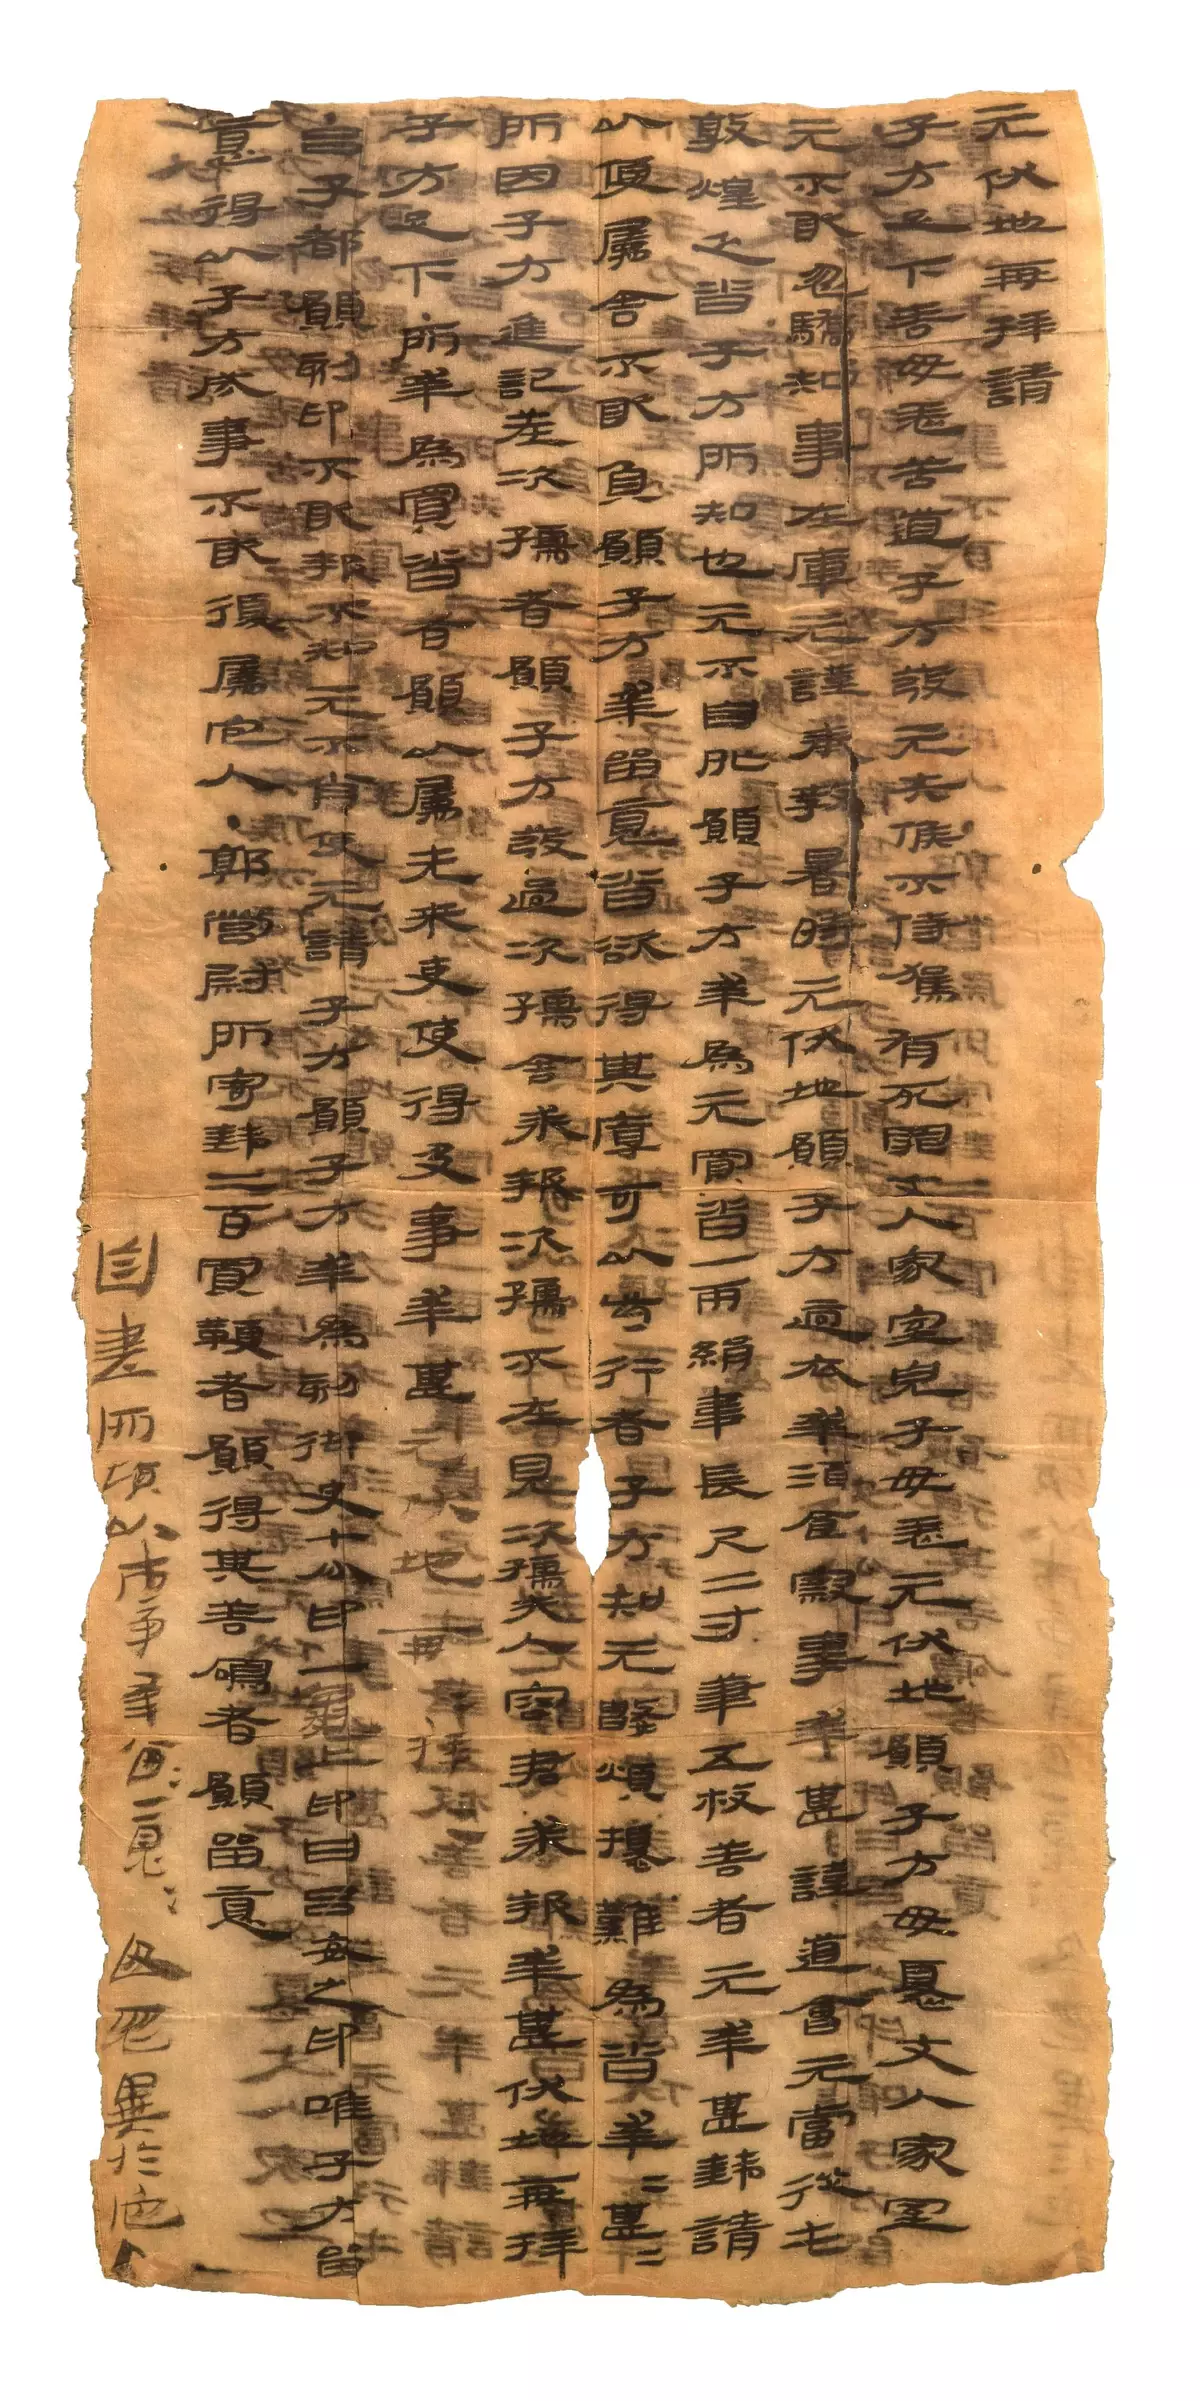 元伏地再拜請
子方足下善毋恙苦道子方發元失候不侍駕有死罪丈人家室兒子毋恙元伏地願子方毋憂丈人家室
元不敢忽驕知事在庫元謹奉教暑時元伏地願子方適衣幸酒食察事幸甚謹道會元當從屯
敦煌乏沓子方所知也元不自外願子方幸爲元買沓一兩絹韋長尺二寸筆五枚善者元幸甚錢請
以便屬舍不敢負願子方幸留意沓欲得其厚可以步行者子方知元數煩擾難爲沓幸=甚=
所因子方進記差次孺者願子方發過次孺舍求報次孺不在見次孺夫人容君求報幸甚伏地再拜
子方足下·所幸爲買沓者願以屬先來吏使得及事幸甚元伏地再拜=
吕子都願刻印不敢報不知元不肖使元請子方願子方幸爲刻御史七分印一龜上印曰吕安之印唯子方留
意得以子方成事不敢復屬它人·郭營尉所寄錢二百買鞭者願得其善鳴者願留意
自書所願以市事幸留=意=毋忽異於它人